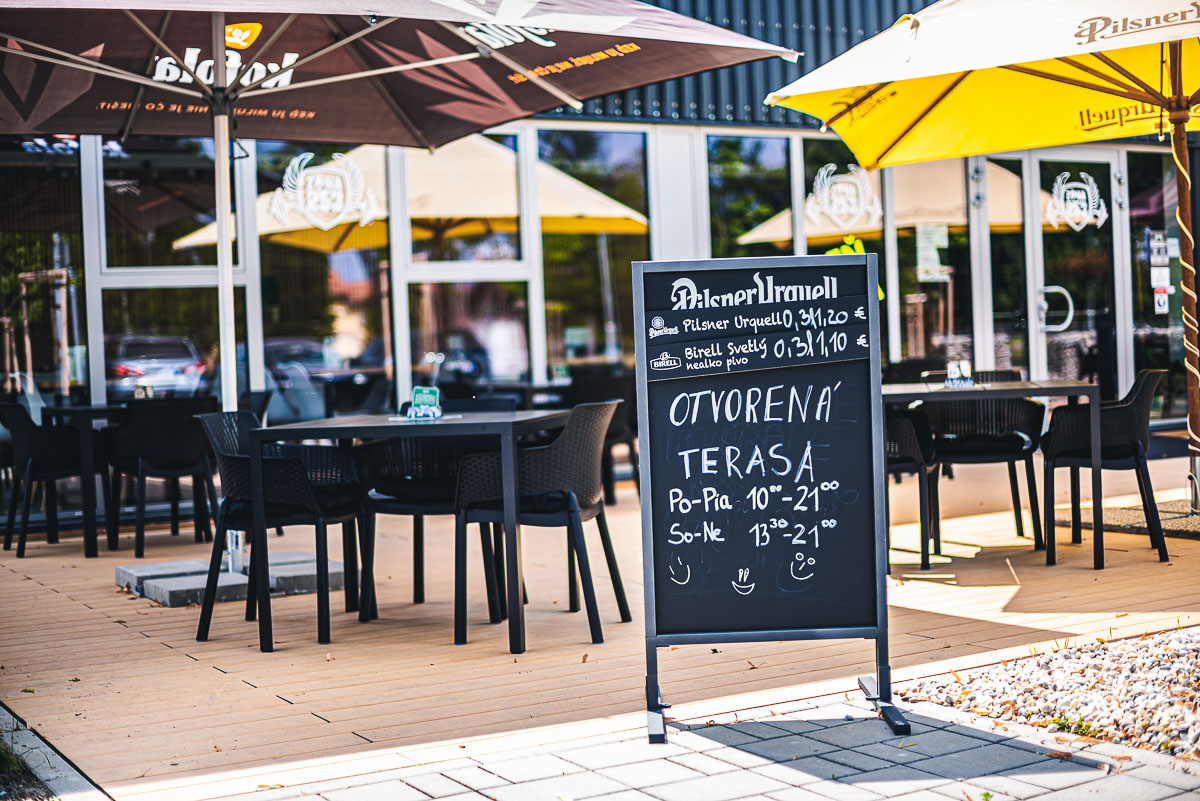 kofola
KEĎ JU MILUJEŠ, NIE JE ČO RIEŠIŤ.
Pilsner Urquell
Pilsner Urquell
Pilsner Urquell
Pilsner Urquell 0,3l 1,20 €
BIRELL
Birell Svetlý 0,3l 1,10 €
nealko pivo
OTVORENÁ
TERASA
Po-Pia 10⁰⁰-21⁰⁰
So-Ne 13³⁰-21⁰⁰